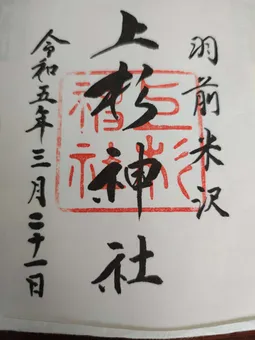 羽前米沢
上杉神社
令和五年三月二十一日
上杉神社